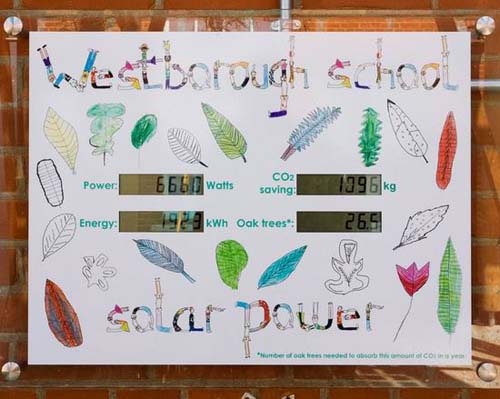 Westborough school
Power: 6660 Watts
CO2 saving: 1096 kg
Energy: 1923 kWh
Oak trees*: 26.5
solar power
*Number of oak trees needed to absorb this amount of CO2 in a year.